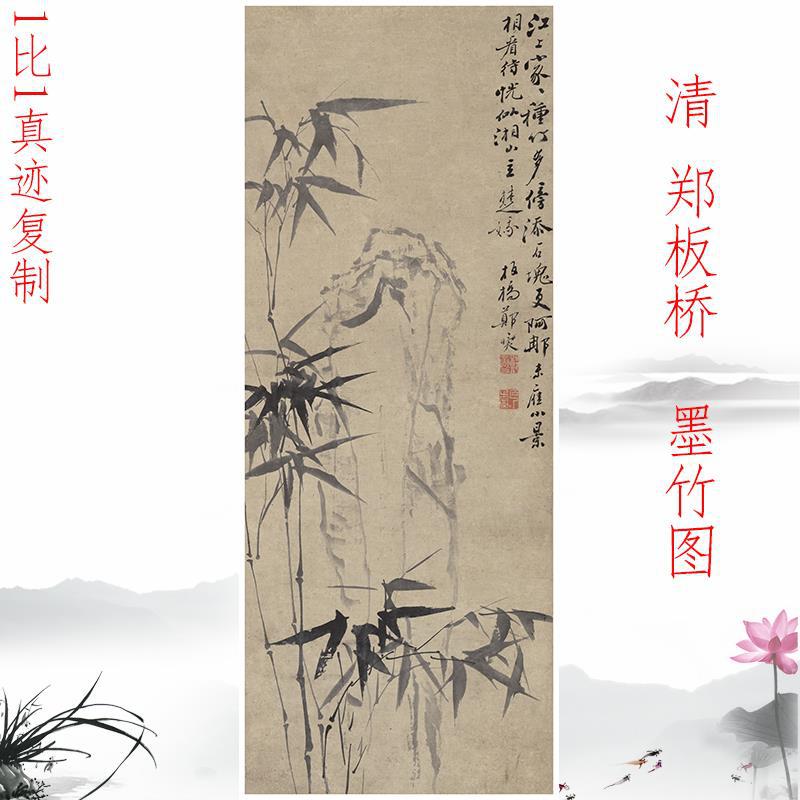 1比1真迹复制
清 郑板桥 墨竹图
江上家、種竹多傍添石塊更阿那未應小景
相看待恍似湘山立楚娥
板橋鄭燮